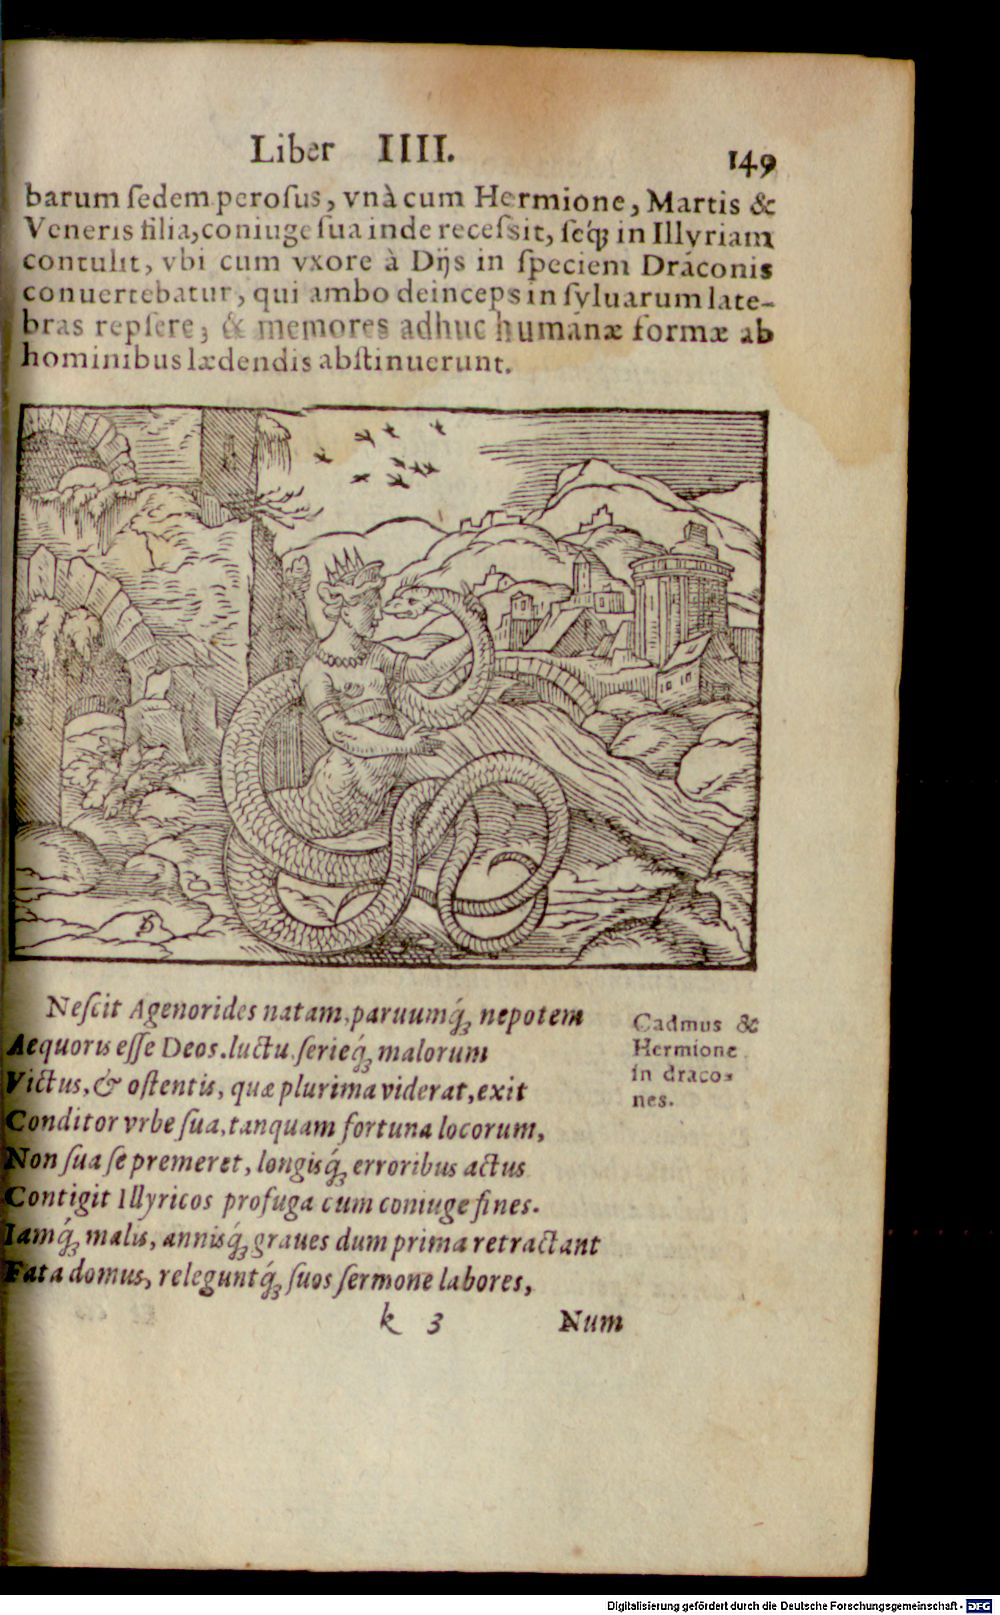 Liber IIII. 149
barum ſedem peroſus, vnà cum Hermione, Martis &
Veneris filia, coniuge ſua inde receſsit, ſeq́ꝫ in Illyriam
contulit, vbi cum vxore à Dijs in ſpeciem Draconis
conuertebatur, qui ambo deinceps in ſyluarum late-
bras repſere, & memores adhuc humanæ formæ ab
hominibus lædendis abſtinuerunt.
Neſcit Agenorides natam, paruumq́ꝫ nepotem
Aequoris eſſe Deos. luctu, ſerieq́ꝫ malorum
Victus, & oſtentis, quæ plurima viderat, exit
Conditor vrbe ſua, tanquam fortuna locorum,
Non ſua ſe premeret, longisq́ꝫ erroribus actus
Contigit Illyricos profuga cum coniuge fines.
Iamq́ꝫ malis, annisq́ꝫ graues dum prima retractant
Fata domus, releguntq́ꝫ ſuos ſermone labores,
Cadmus &
Hermione
in draco-
nes.
k 3 Num
Digitalisierung gefördert durch die Deutsche Forschungsgemeinschaft - DFG